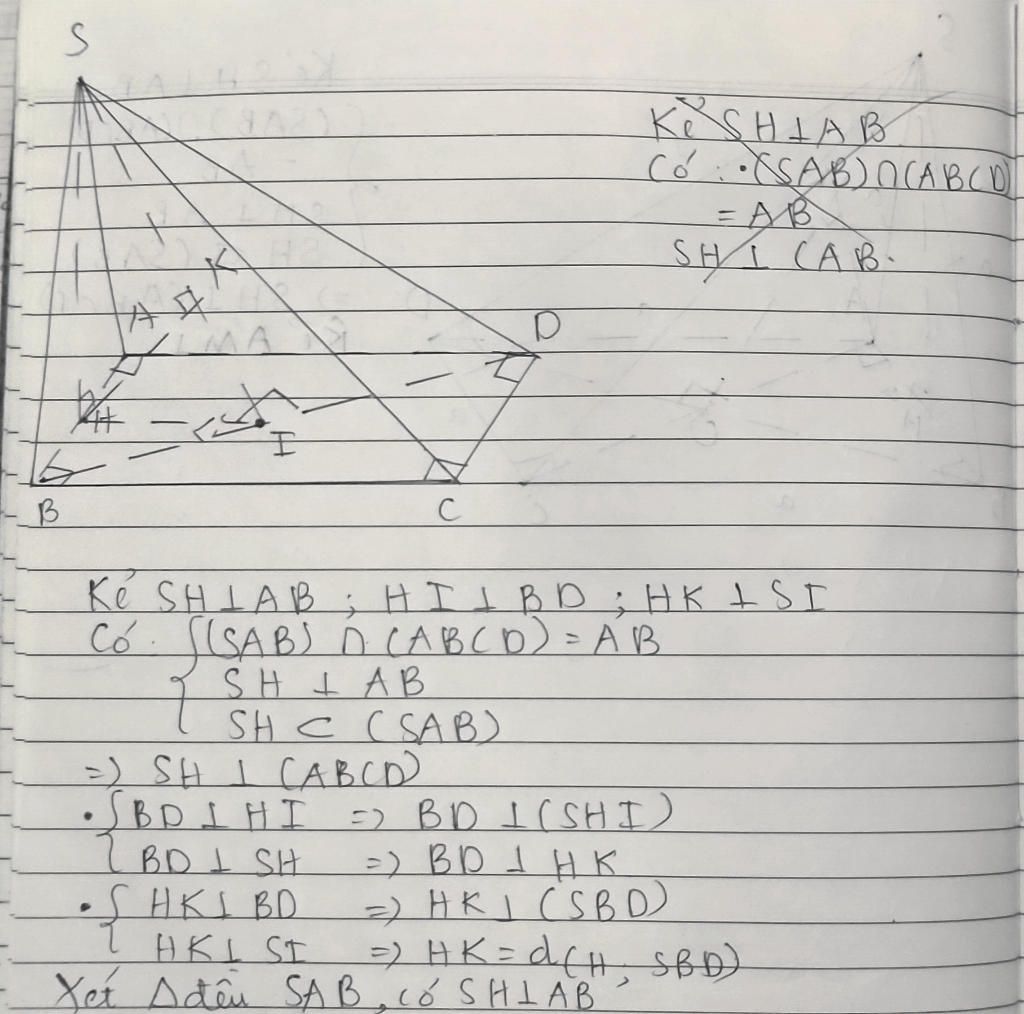 S
Kẻ SH⊥AB
Có : •(SAB)∩(ABCD)
= AB
SH ⊥ (AB.
K
A
D
H
I
B
C
Kẻ SH⊥AB ; HI⊥BD ; HK ⊥ SI
Có : {(SAB) ∩ (ABCD) = AB
SH ⊥ AB
SH ⊂ (SAB)
=> SH ⊥ (ABCD)
• {BD ⊥ HI => BD ⊥ (SHI)
BD ⊥ SH => BD ⊥ HK
• { HK⊥ BD => HK⊥ (SBD)
HK⊥ SI => HK = d(H, SBD)
Xét Δđều SAB, có SH⊥AB